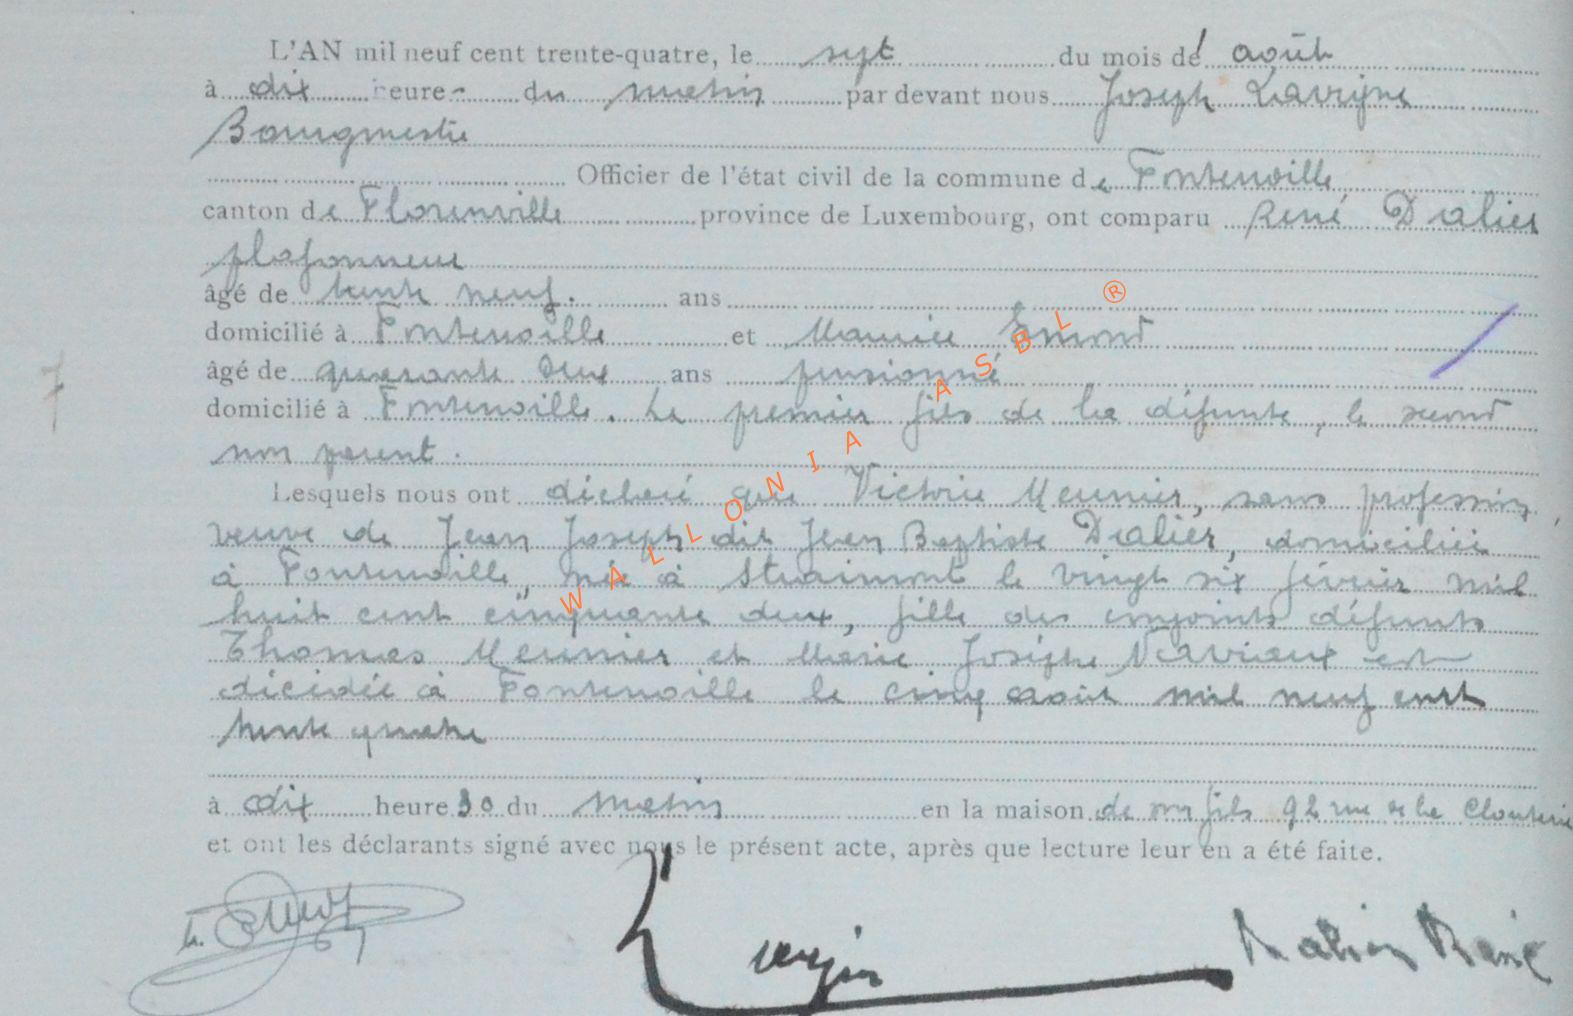 L'AN mil neuf cent trente-quatre, le sept du mois de août
à dix heure du matin par devant nous Joseph Lavigne
Bourgmestre
Officier de l'état civil de la commune de Fontenoille
canton de Florenville province de Luxembourg, ont comparu René Dalier
plafonneur
âgé de trente neuf. ans
domicilié à Fontenoille et Maurice Emond
âgé de quarante deux ans pensionné
domicilié à Fontenoille. Le premier fils de la défunte, le second
non parent.
Lesquels nous ont déclaré que Victorie Meunier, sans profession,
veuve de Jean Joseph dit Jean Baptiste Dalier, domiciliée
à Fontenoille, née à Straimont le vingt six février mil
huit cent cinquante deux, fille des conjoints défunts
Thomas Meunier et Marie Josèphe est
décédée à Fontenoille le cinq août mil neuf cent
trente quatre
à dix heure 30 du matin en la maison de son fils 92 rue de la Clouterie
et ont les déclarants signé avec nous le présent acte, après que lecture leur en a été faite.
Dalier René
7
WALLONIA ASBL ®